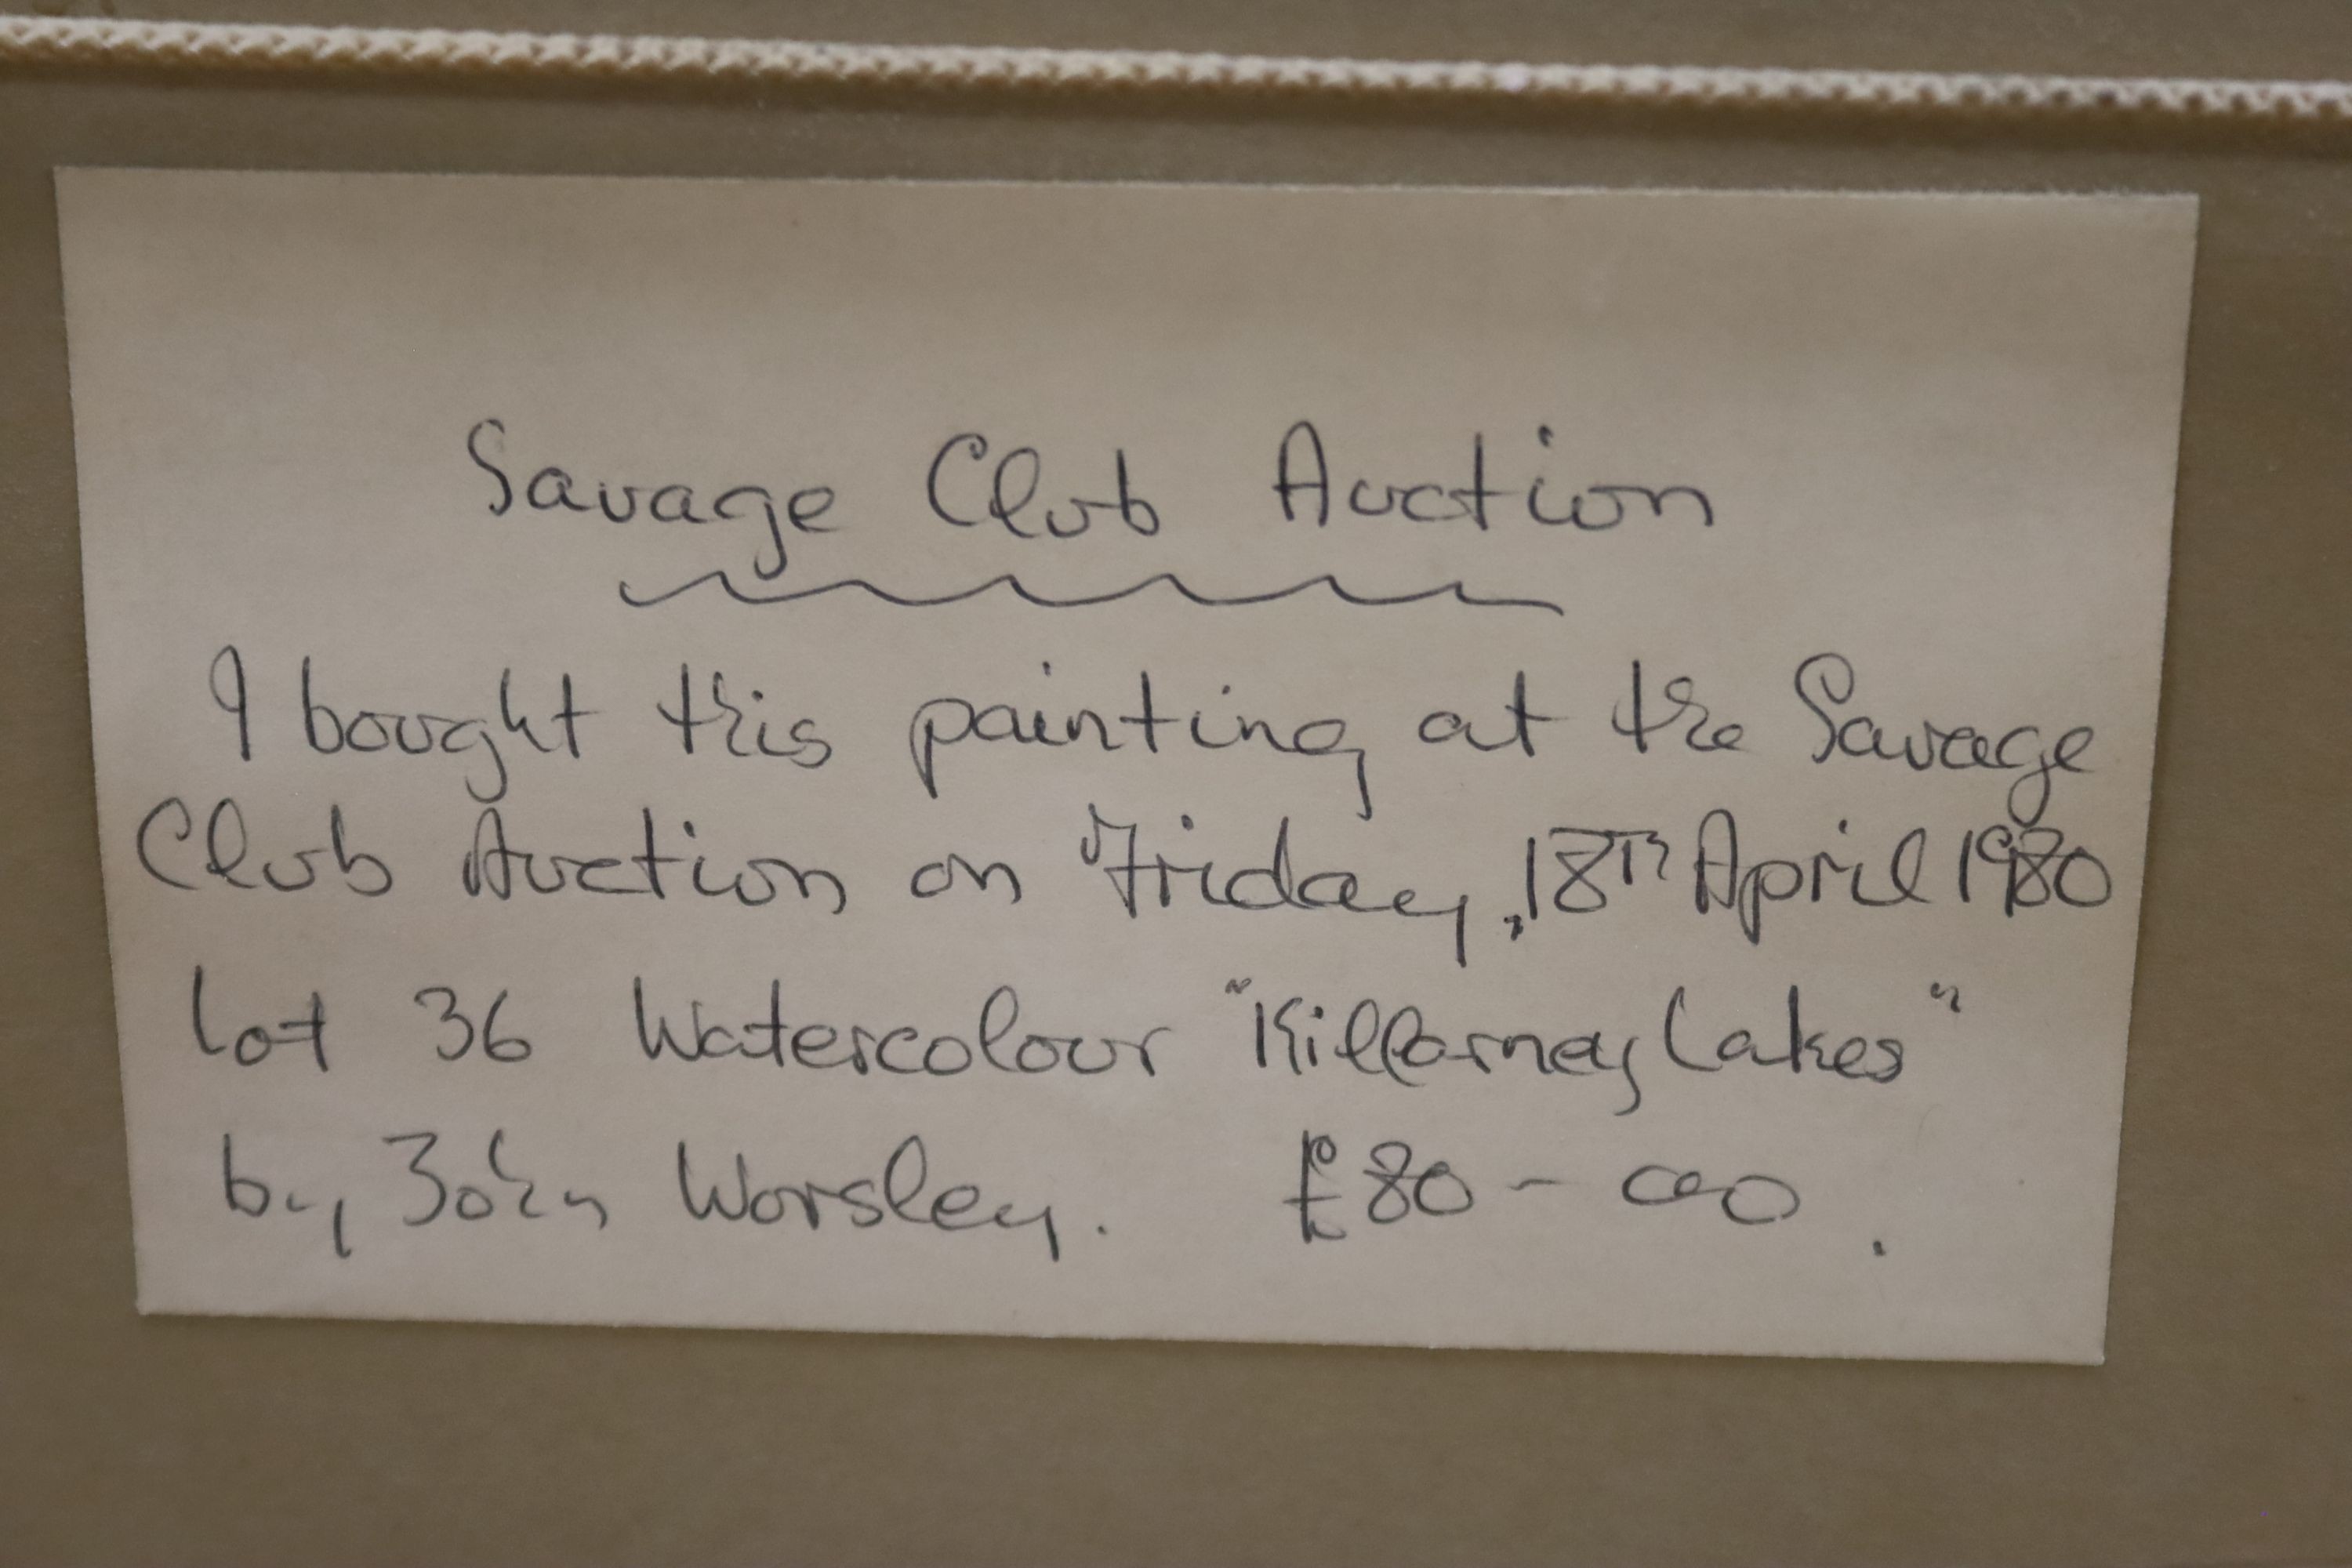 Savage Club Auction
I bought this painting at the Savage
Club Auction on Friday, 18TH April 1980
Lot 36 Watercolour "Killarney Lakes"
by John Worsley. £80-00.